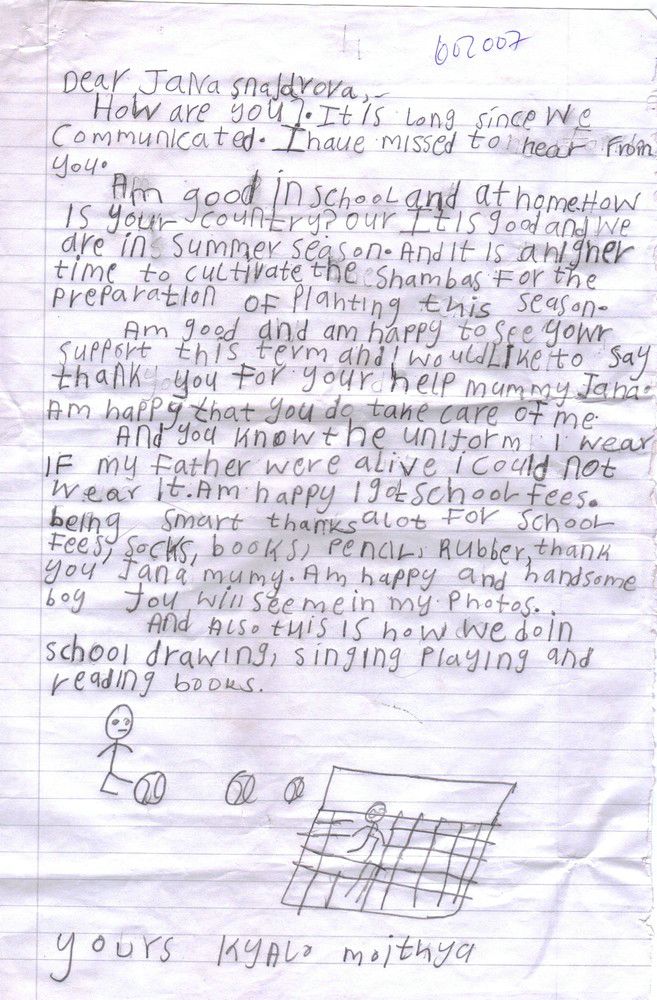 602007
Dear Jana snaJdrova,-
How are you?. It is long since we
communicated. I haue missed to hear from
you.
Am good in school and at home. How
is your country? our It is good and we
are in summer season. And it is a higher
time to cultivate the shambas for the
preparation of planting this season.
Am good and am happy to see your
support this term and I would like to say
thank you for your help mummy Jana.
Am happy that you do take care of me.
And you know the uniform i wear
if my father were alive i could not
wear it. Am happy I got school fees.
being smart thanks alot for school
fees, socks, books, pencil, Rubber, thank
you Jana mumy. Am happy and handsome
boy Jou will see me in my photos..
And Also this is how we do in
school drawing, singing playing and
reading books.
yours KYALO moithya